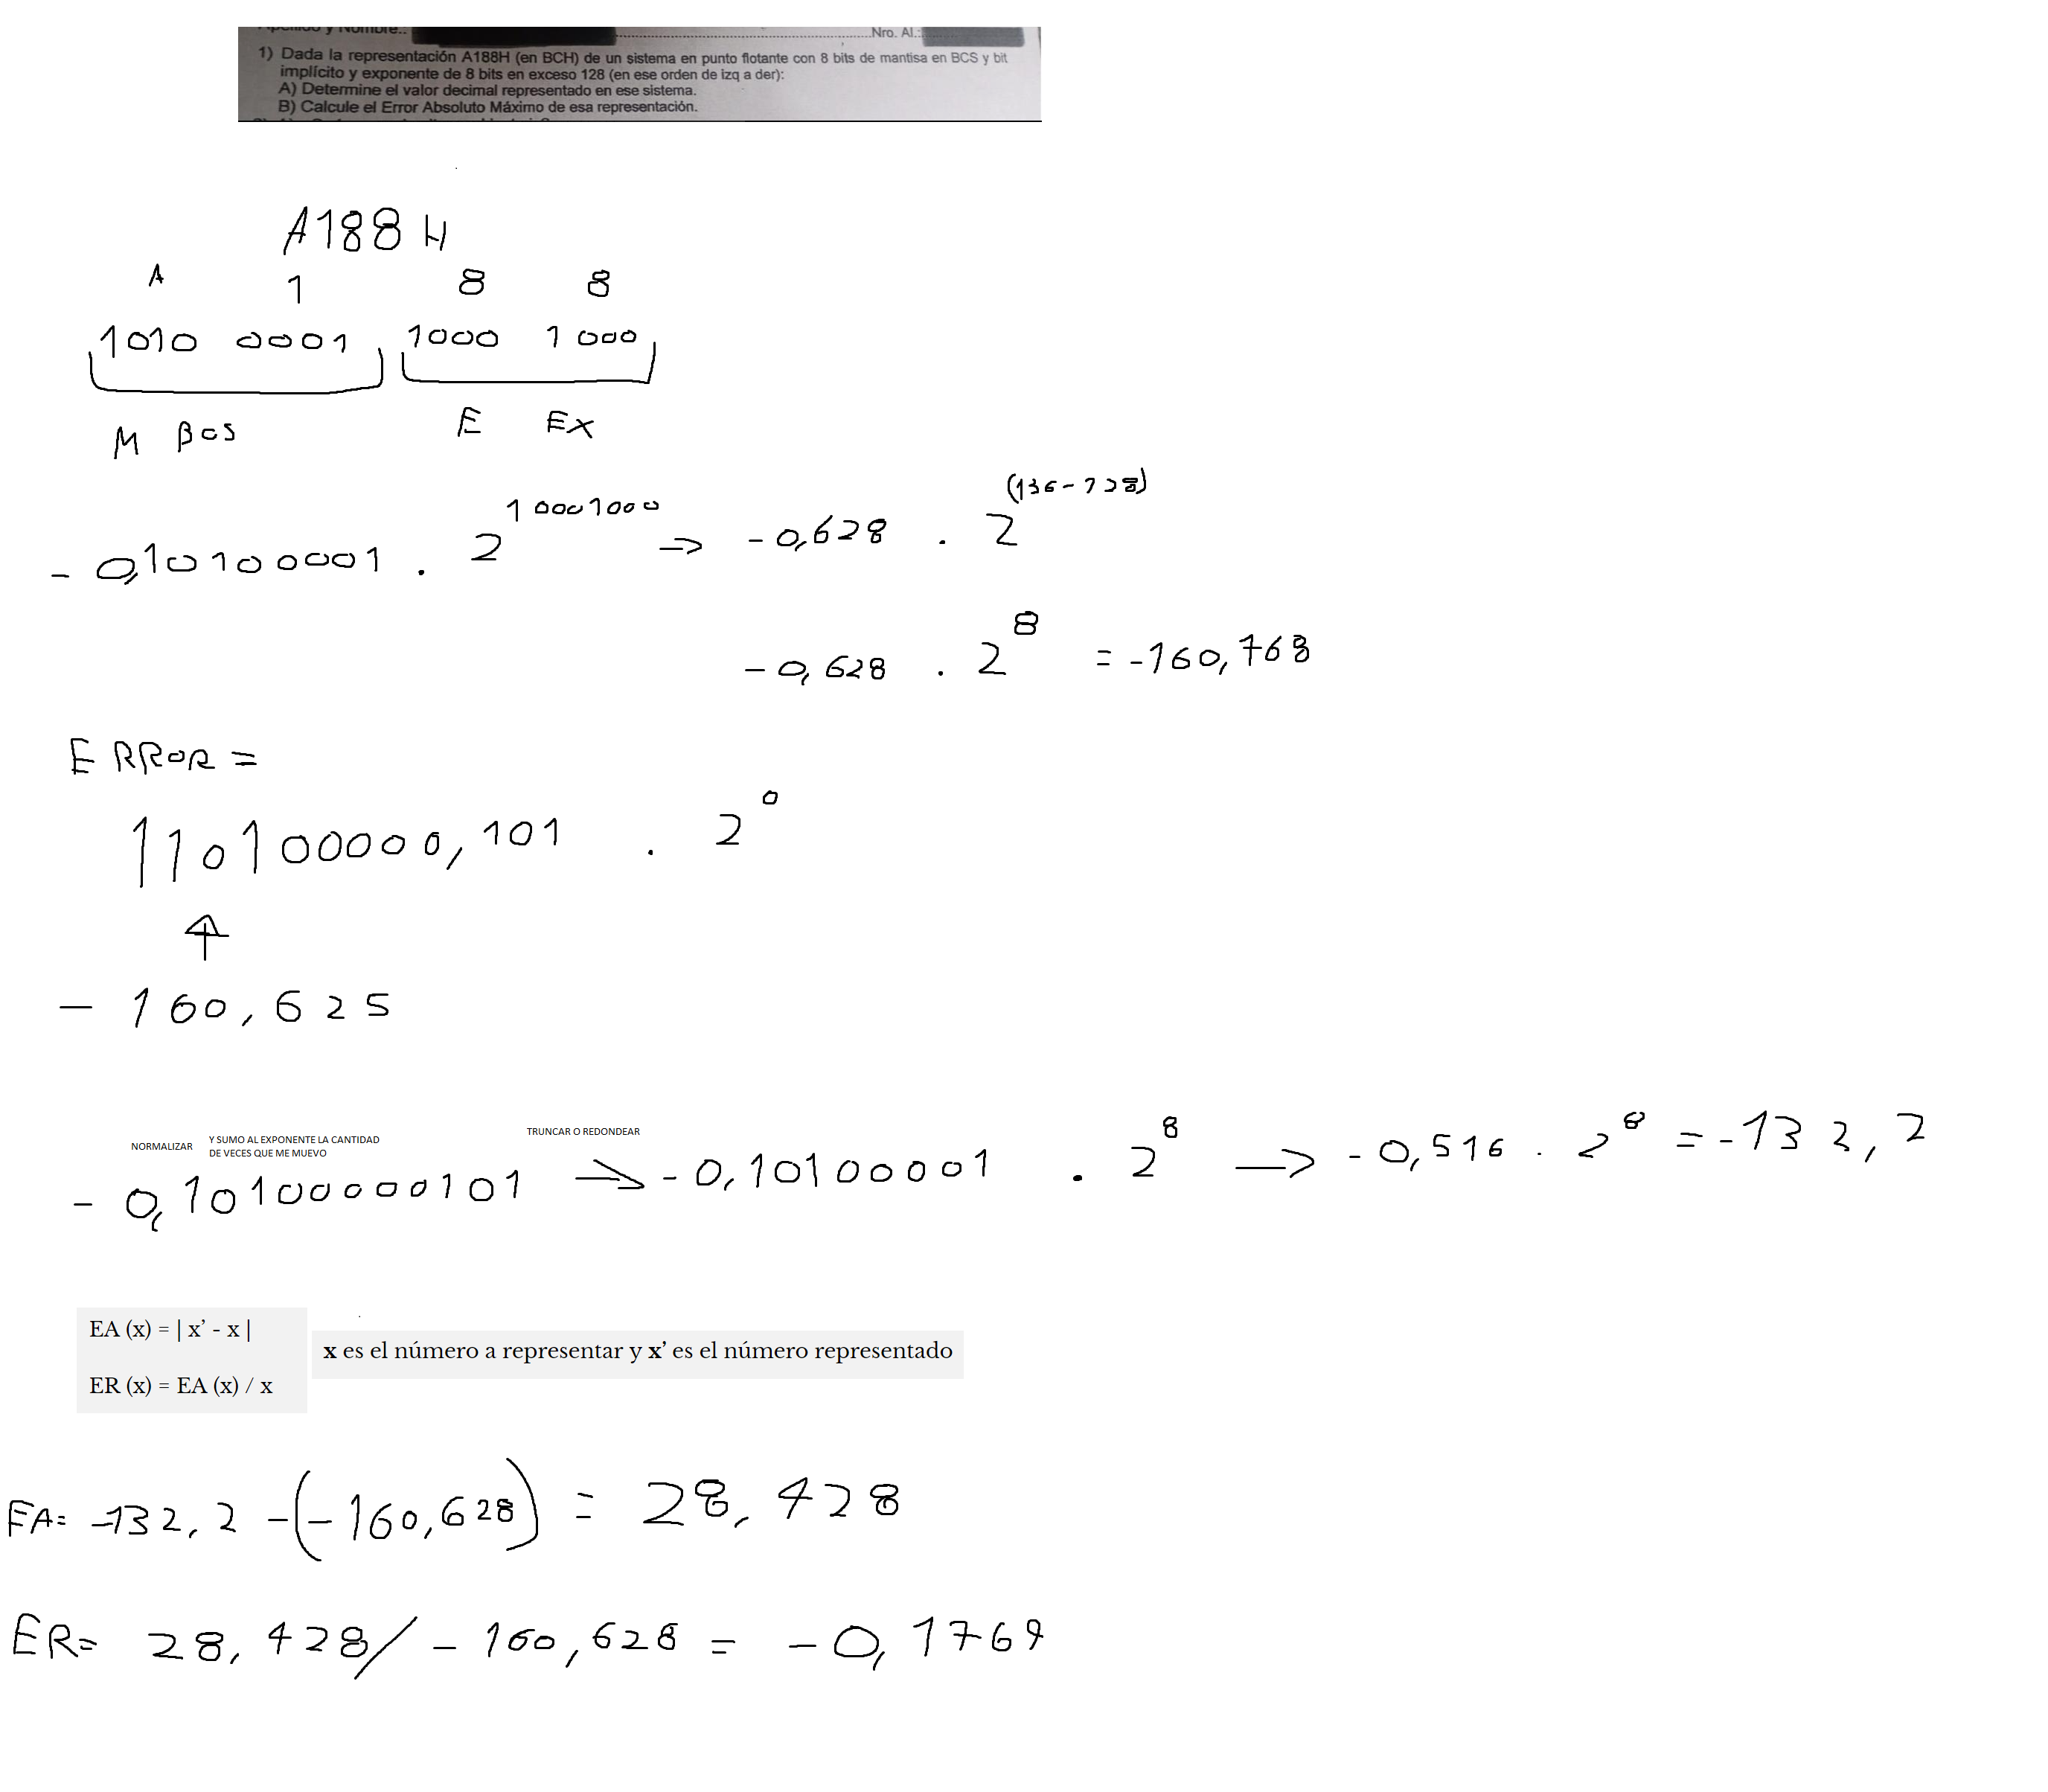 Apellido y Nombre.: Nro. Al.:
1) Dada la representación A188H (en BCH) de un sistema en punto flotante con 8 bits de mantisa en BCS y bit
implícito y exponente de 8 bits en exceso 128 (en ese orden de izq a der):
A) Determine el valor decimal representado en ese sistema.
B) Calcule el Error Absoluto Máximo de esa representación.
A188 H
A 1 8 8
1010 0001 1000 1000
M BCS E EX
- 0,10100001 . 2^10001000 -> - 0,628 . 2^(136-128)
- 0,628 . 2^8 = -160,768
ERROR =
110100000,101 . 2^0
↑
- 160,625
NORMALIZAR Y SUMO AL EXPONENTE LA CANTIDAD
DE VECES QUE ME MUEVO
TRUNCAR O REDONDEAR
- 0,10100000101 -> - 0,10100001 . 2^8 -> - 0,516 . 2^8 = -132,2
EA (x) = | x’ - x |
ER (x) = EA (x) / x
x es el número a representar y x’ es el número representado
EA= -132,2 -(-160,628) = 28,428
ER= 28,428/ - 160,628 = - 0,1769